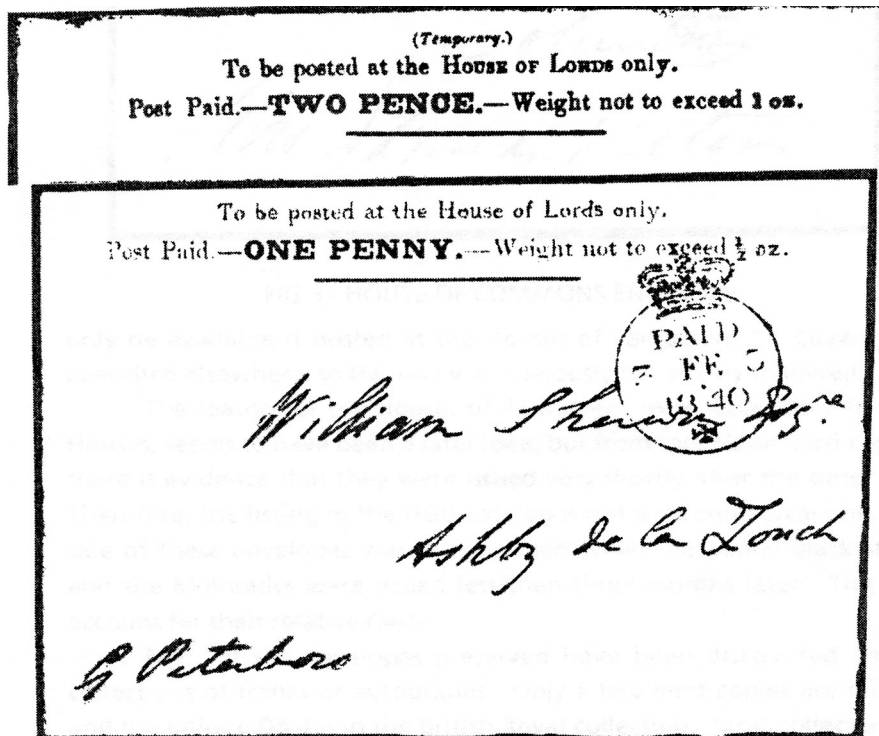 (Temporary.)
To be posted at the House of Lords only.
Post Paid.—TWO PENCE.—Weight not to exceed 1 oz.
To be posted at the House of Lords only.
Post Paid.—ONE PENNY.—Weight not to exceed ½ oz.
PAID
FE
1840
William Esqre
Ashby de la Zouch
G Peterboro